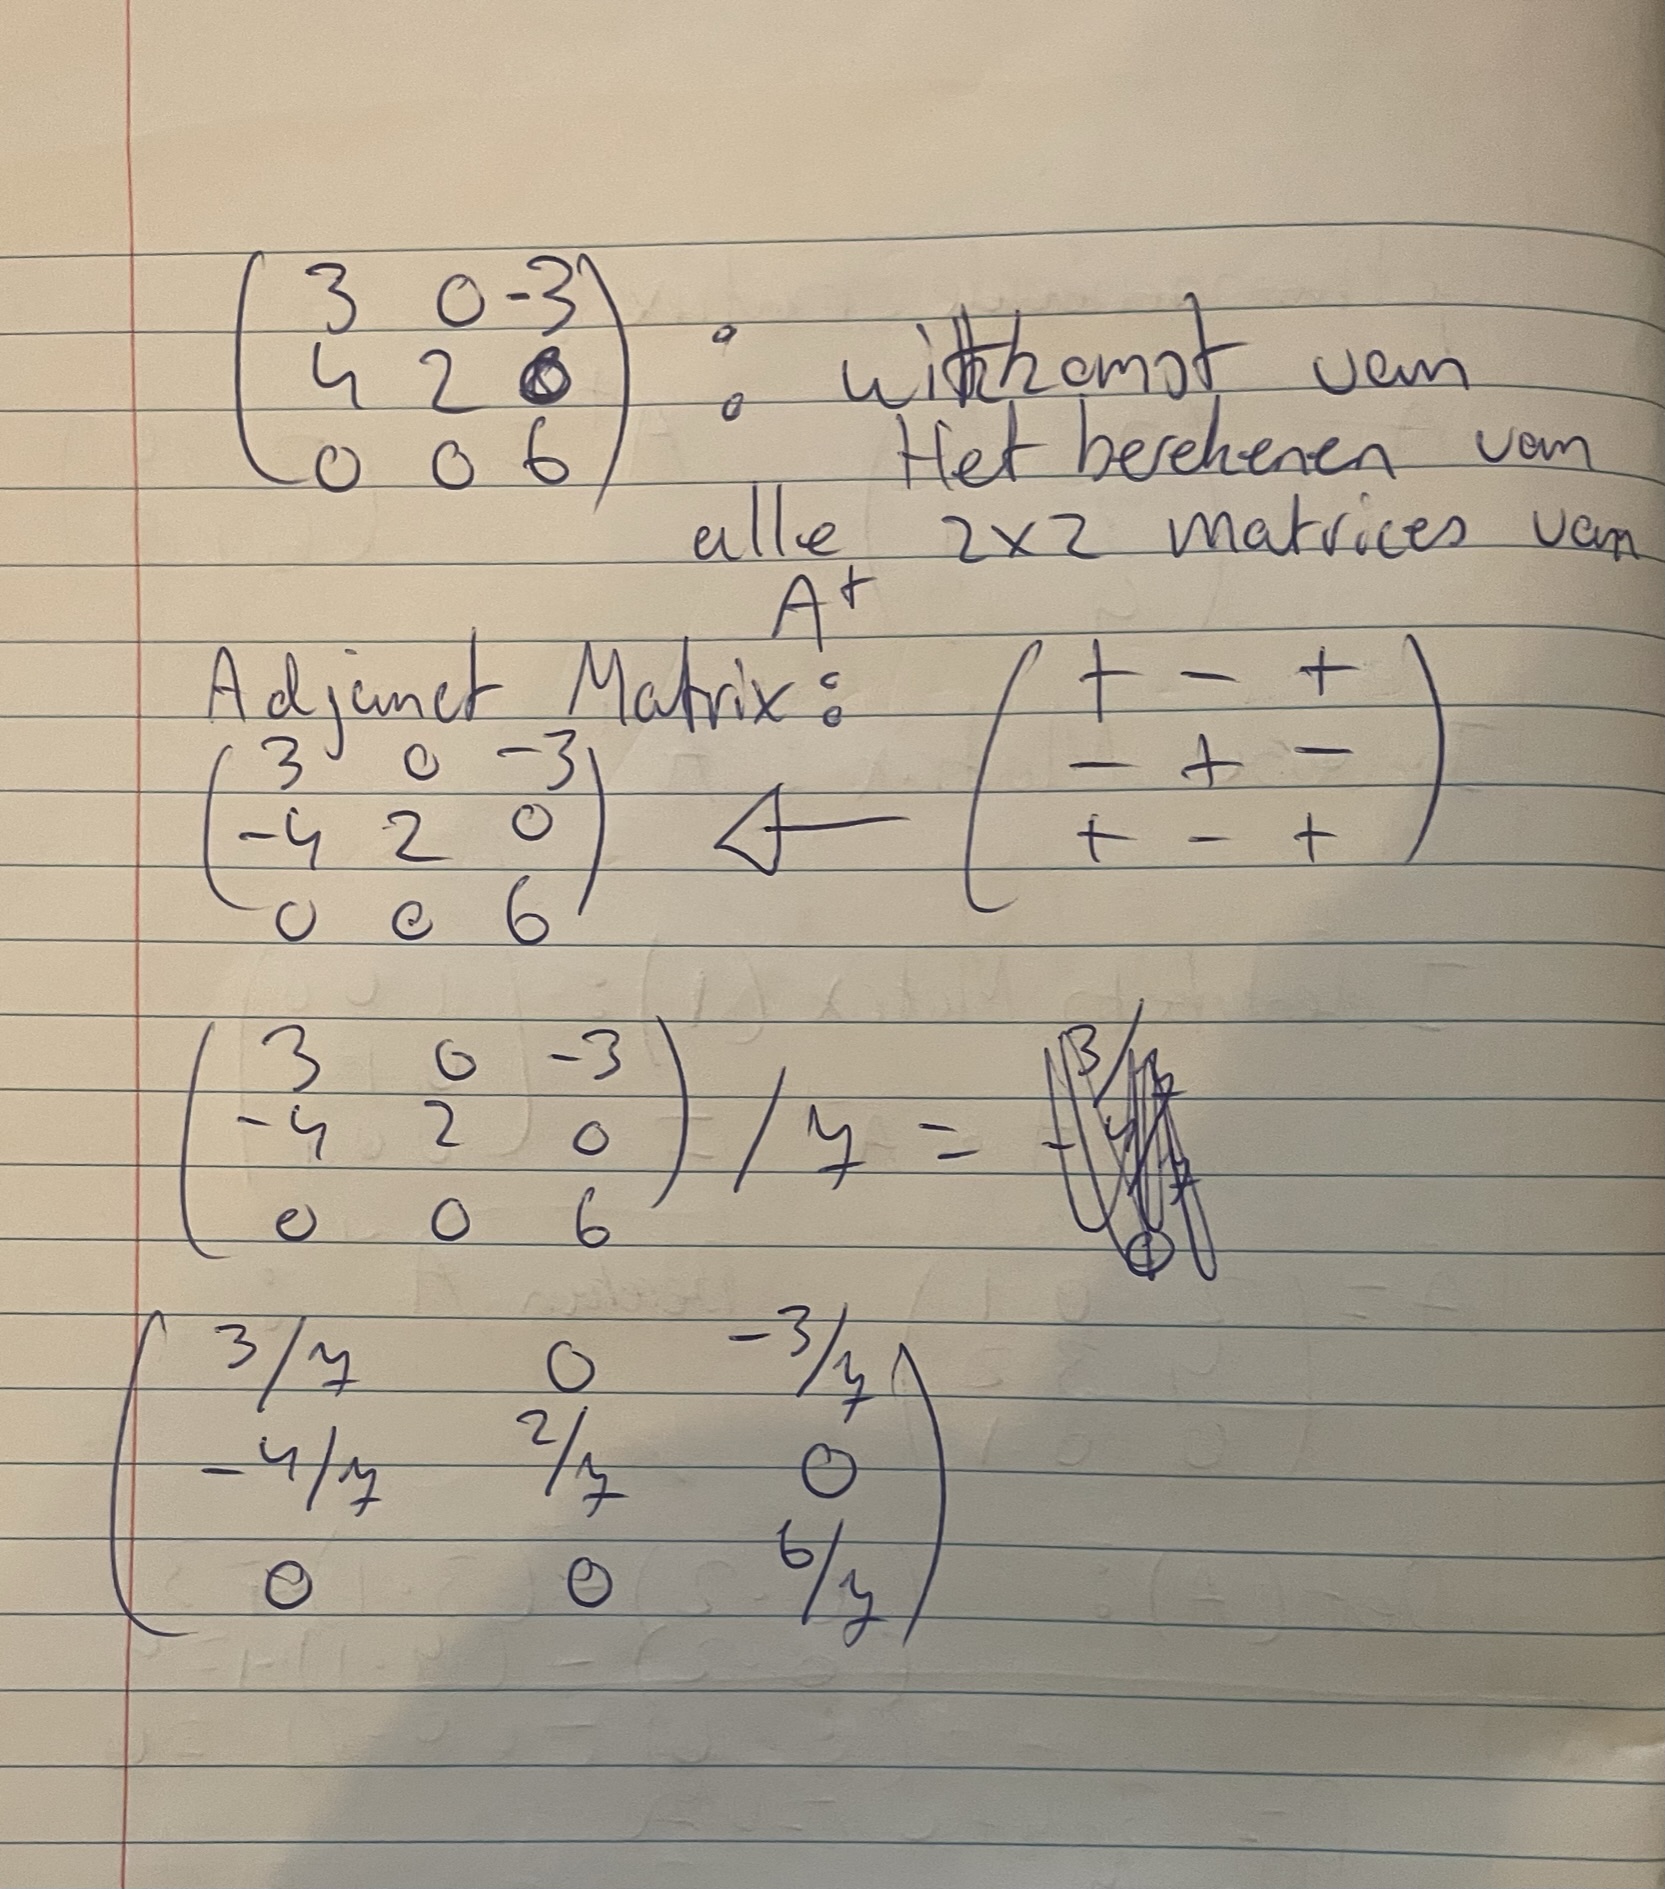 3 0 -3 : uitkomst van
4 2 0 Het berekenen van
0 0 6 alle 2x2 matrices van
A^t
Adjunct Matrix:
3 0 -3
-4 2 0
0 0 6
+ - +
- + -
+ - +
3 0 -3
-4 2 0 / y =
0 0 6
3/y 0 -3/y
-4/y 2/y 0
0 0 6/y